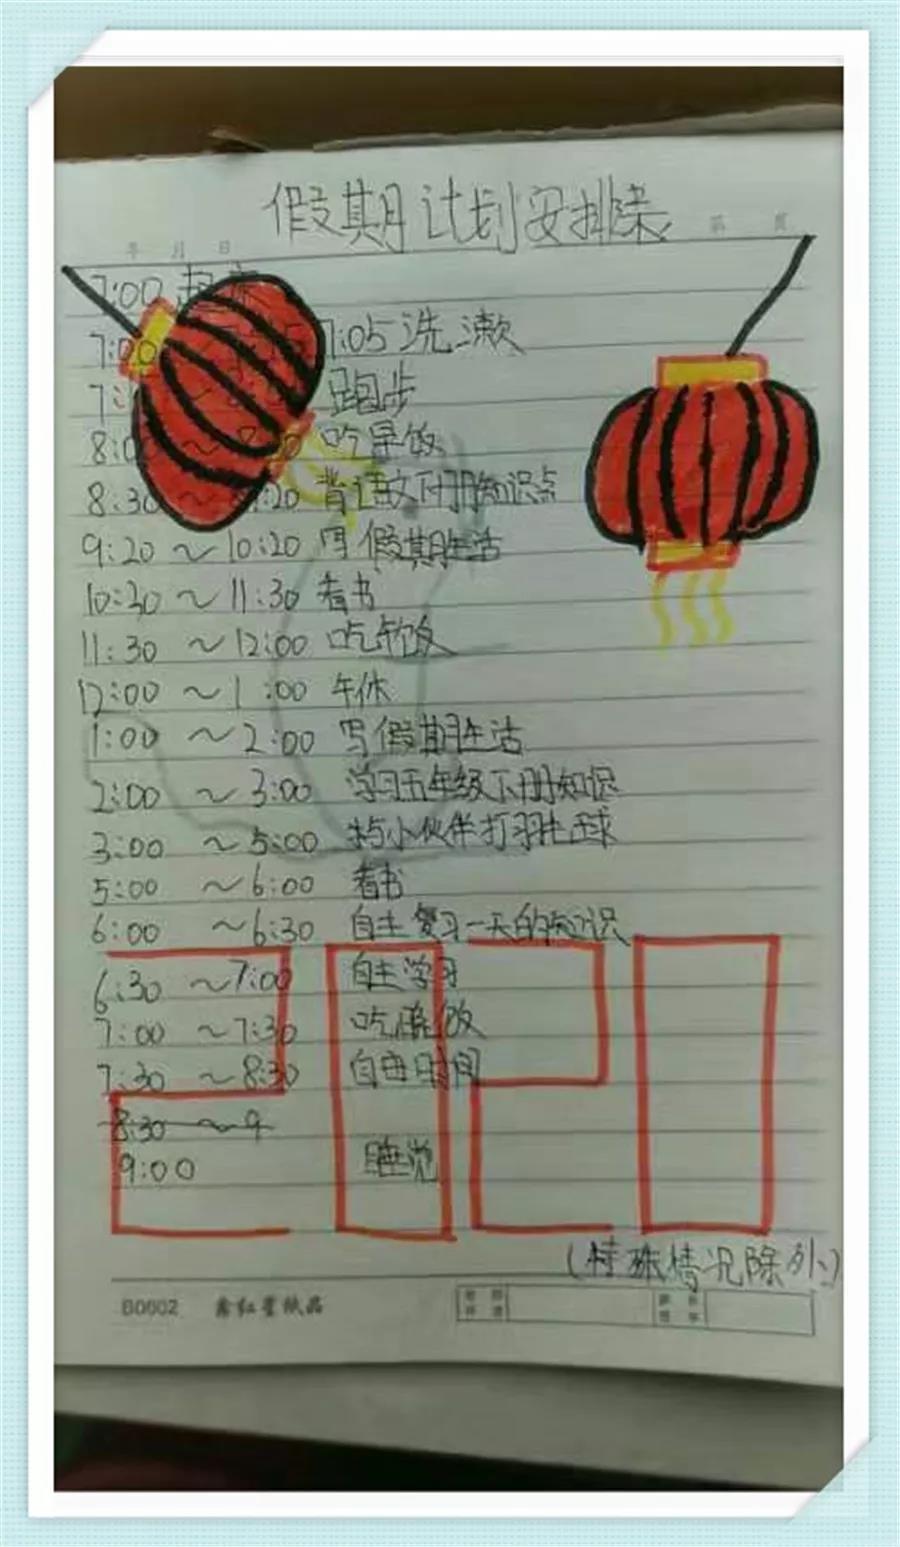 假期计划安排
第 页
年 月 日
7:00 起床
7:00 7:05 洗漱
跑步
8:00 ~ 吃早饭
8:30 ~ :20 背语文下册知识点
9:20 ~ 10:20 写假期生活
10:30 ~ 11:30 看书
11:30 ~ 12:00 吃午饭
12:00 ~ 1:00 午休
1:00 ~ 2:00 写假期生活
2:00 ~ 3:00 学习五年级下册知识
3:00 ~ 5:00 与小伙伴打羽毛球
5:00 ~ 6:00 看书
6:00 ~ 6:30 自主复习一天的知识
6:30 ~ 7:00 自主学习
7:00 ~ 7:30 吃晚饭
7:30 ~ 8:30 自由时间
8:30 ~ 9
9:00 睡觉
2020
(特殊情况除外)
B0602 鑫红星纸品